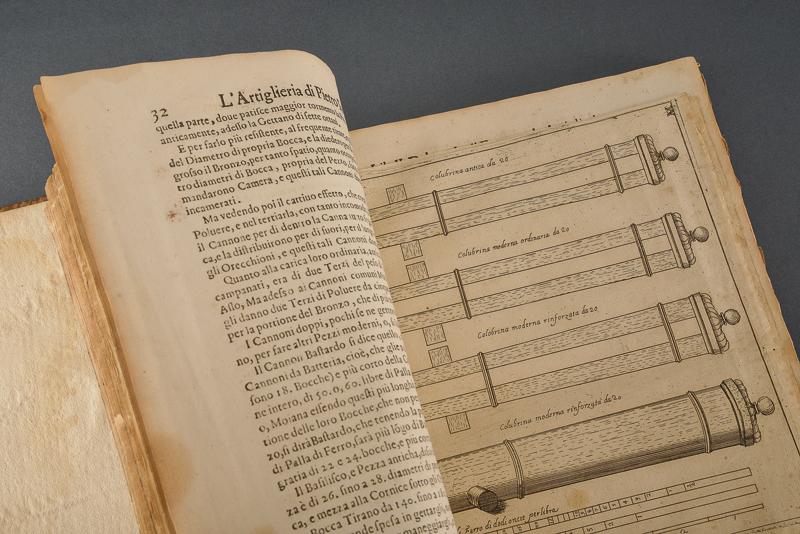 32
L'Artiglieria di Pietro
quella parte, doue patisce maggior tormento
anticamente, adesso la Gettano di sette ottaui,
E per farlo più resistente, al frequente
del Diametro di propria Bocca, e la
grosso il Bronzo, per tanto spatio, quanto
tro diametri di Bocca, propria del Pezzo,
mandarono Camera, e questi tali Cannoni
incamerati.
Ma vedendo poi il cattiuo effetto, che
Poluere, e nel terciarla, con tanto
il Cannone per di dentro la Canna
ca, e la distribuirono per di fuori, per
gli Orecchioni, e questi tali Cannoni,
Quanto alla carica loro ordinaria,
campanati, era di due Terzi del peso
Asso, Ma adesso ai Cannoni comuni
gli danno due Terzi di Poluere da
per la portione del Bronzo, che di
I Cannoni doppi, pochi se ne
no, per fare altri Pezzi moderni, o,
Il Cannon Bastardo si dice quello,
Cannoni da Batteria, cioè, che
sono 18. Bocche) e più corto della
ne intero, di 50. o, 60. libre di Palla
o, Moiana essendo questi più
tione delle loro Bocche, che non
zo, si dirà Bastardo, che tenendo la
di Palla di Ferro, sarà più lõgo di
gratia di 22 e 24. bocche, e più
Il Basilisco, e Pezza antica, di
za è di 26. fino a 28. diametri di
ca, e mezza alla Cornice sotto gli
Bocca Tirano da 140. fino a
spesa in gettargli,
maneggiar
Colubrina antica da 20
Colubrina moderna ordinaria da 20
Colubrina moderna rinforzata da 20
Colubrina moderna rinforzata da 20
Ferro di dodi once per libra